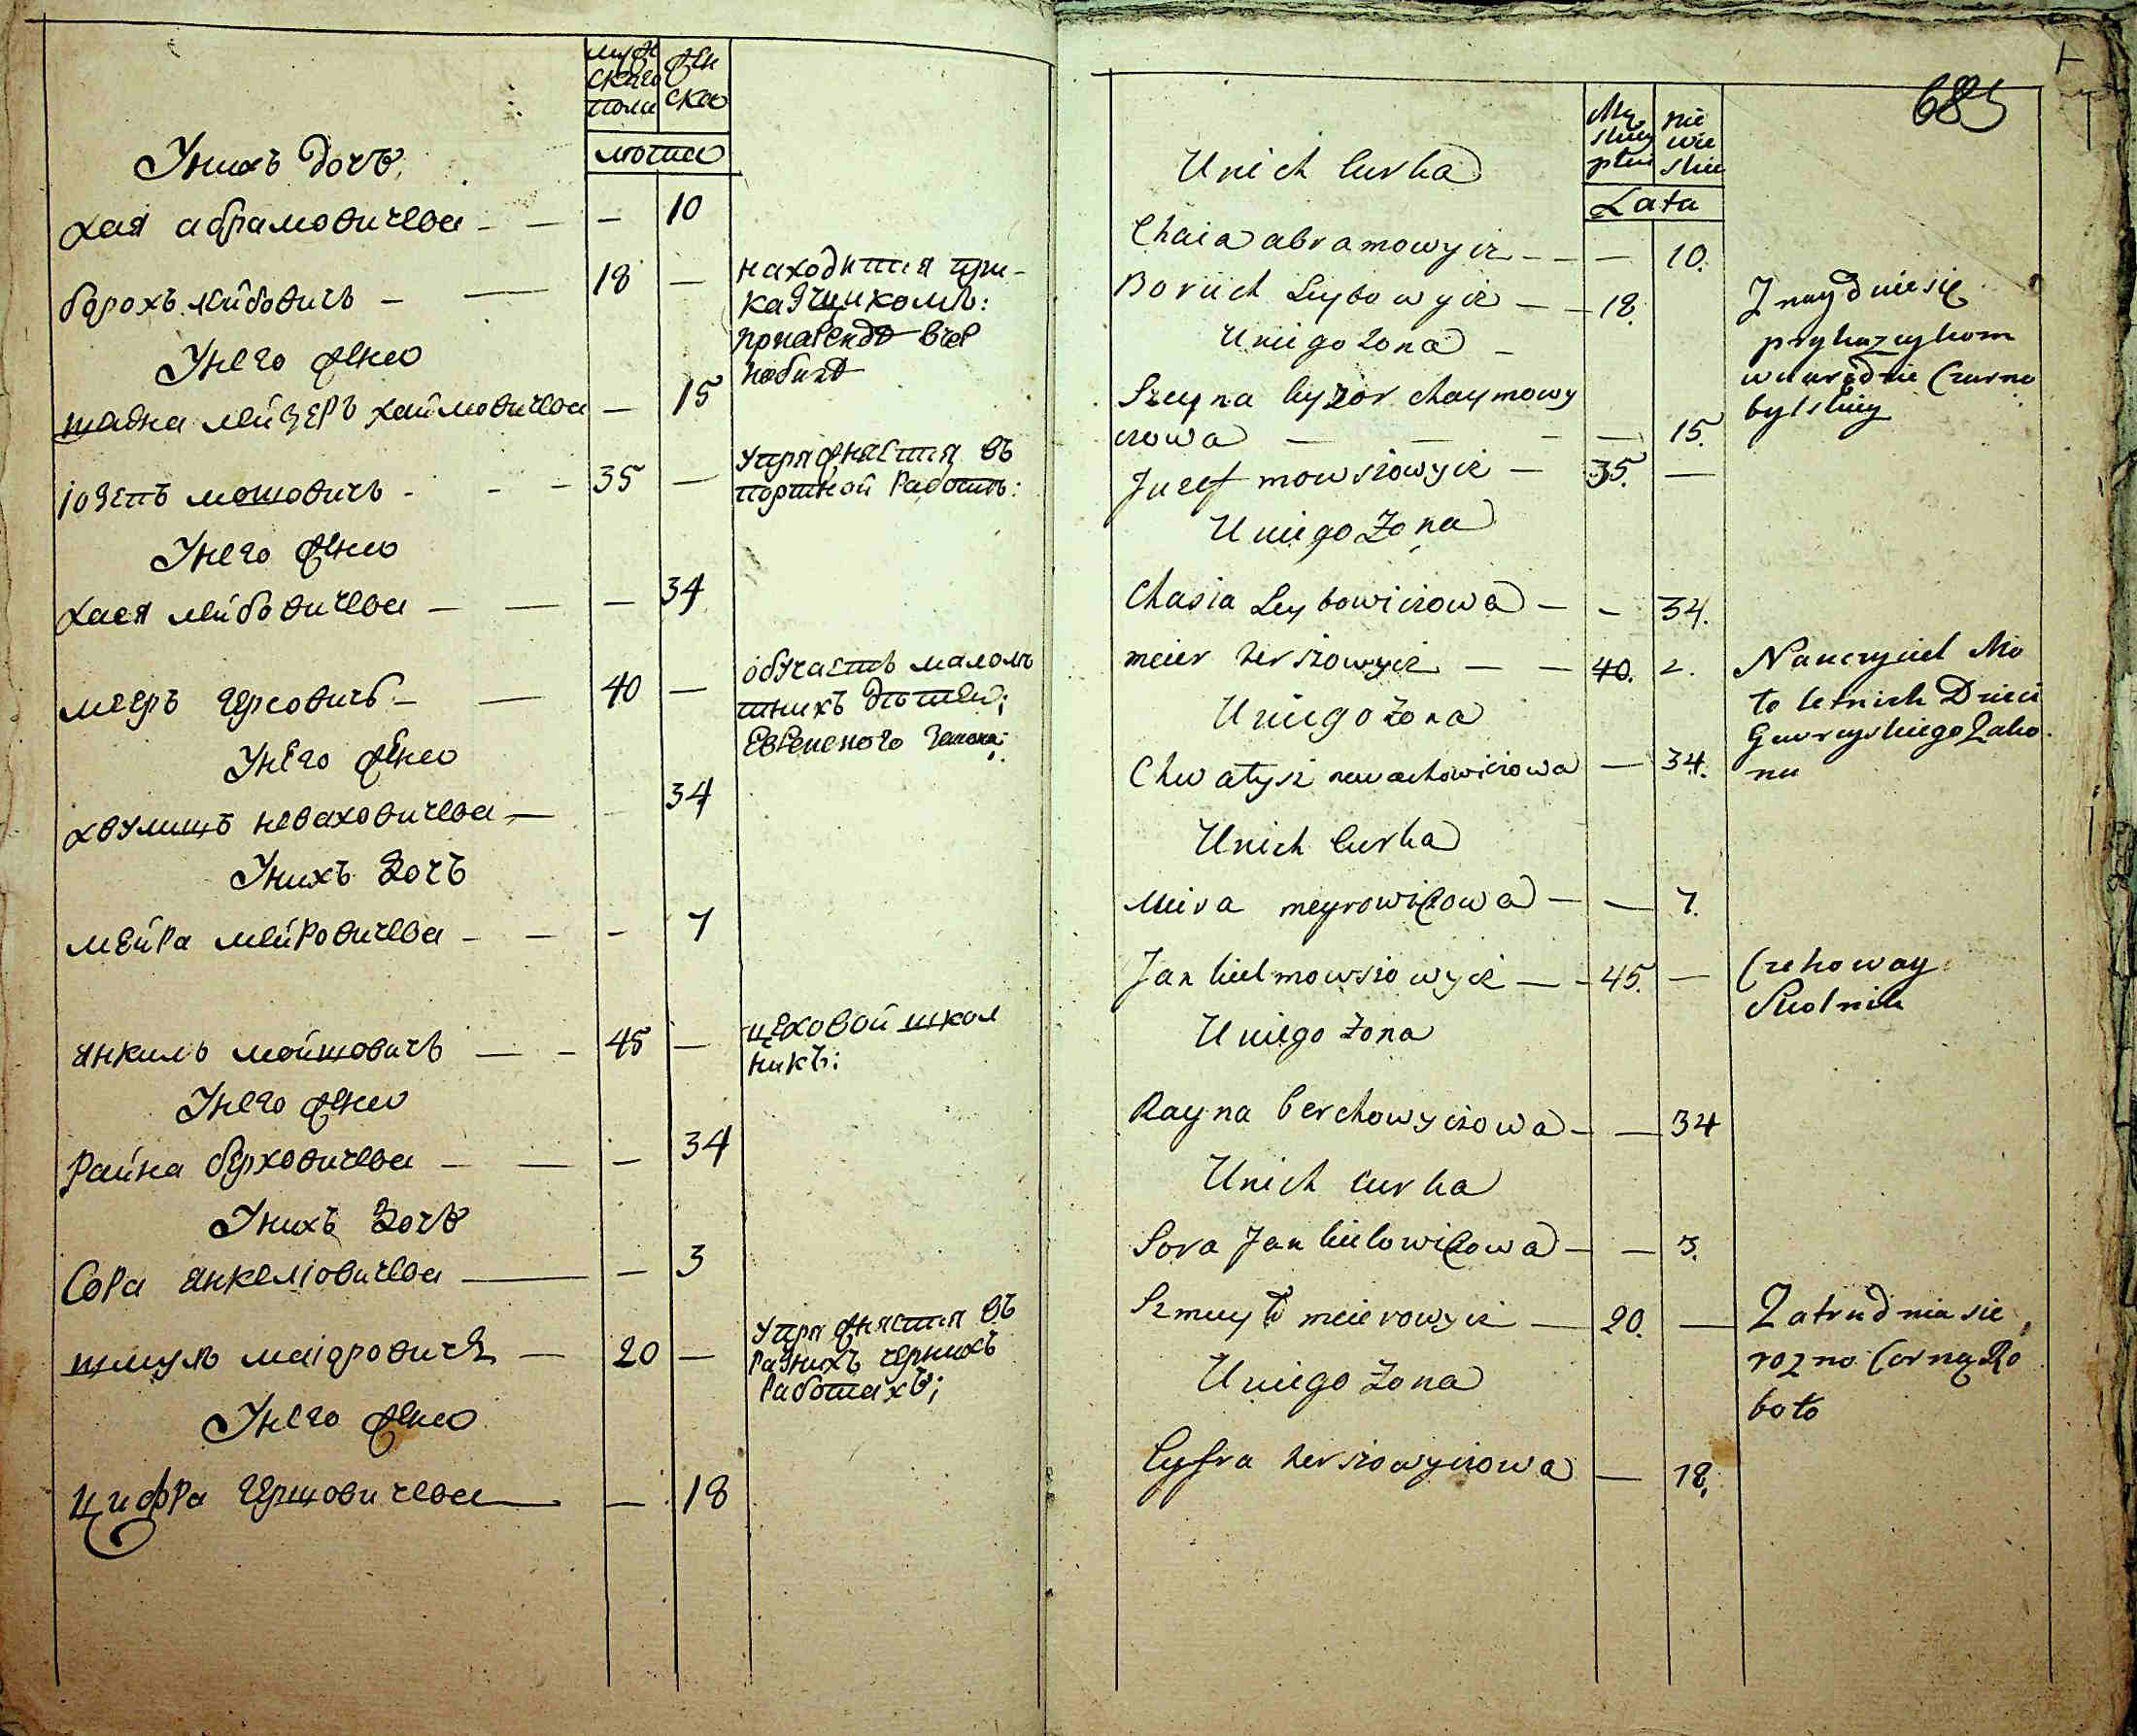 мужскаго пола
женска
лѣта
Унихъ дочь
хая абрамовичева — — — 10
борохъ лейбовичъ — — 18 —
находится при-
кащикомъ:
приарендѣ вчер
нобилѣ
Унего жена
шаӥна лейзеръ хаимовичева — 15
іозепъ мошовичъ - - - 35 —
упражняется въ
портной работѣ:
Унего жена
хася лейбовичева — — — 34
мееръ герсовичъ — — 40 —
обучаетъ малолѣ
тнихъ дѣтей;
Еврейского закона;
Унего жена
хвулишъ неваховичева — 34
Унихъ дочъ
мейра мейровичева — — - 7
янкиль мойшовичъ — - 45 —
цеховой школ
никъ:
Унего жена
райна берховичева — — — 34
Унихъ дочь
Сора янкеліовичева — — 3
шмуль маіоровичъ — 20 —
упражняется въ
разнихъ чернихъ
работахъ;
Унего жена
цифра гершовичева — — 18
685
Męskiey płci
niewieskie
Lata
Unich Curka
Chaia abramowycz - — — 10.
Boruch Leybowycz — - 18.
Znayduiesię
prykazcykom
w aręndzie Czarno
bylskiey
Uniego żona —
Szeyna leyzor chaymowy
czowa — — - — 15.
Juzef mowszowycz — 35. —
Uniego Zona
Chasia Leybowiczowa — - 34.
meier herszowycz — — 40. -
Nauczyciel Ma
ło letnich Dzieci
Gewreyskiego Zako
nu
Uniego żona
Chwałysz newachowiczowa — 34.
Unich Curka
Meira meyrowiczowa — — 7.
Jankiel mowszowycz — - 45. —
Czehoway
Skolnik
Uniego żona
Rayna berchowyczowa - — 34
Unich Curka
Sora Jankielowiczowa — — 3.
Szmuyło meierowycz — 20. —
Zatrudnia sie
rozno Corną Ro
boto
Uniego żona
Cyfra herszowyczowa — 18.